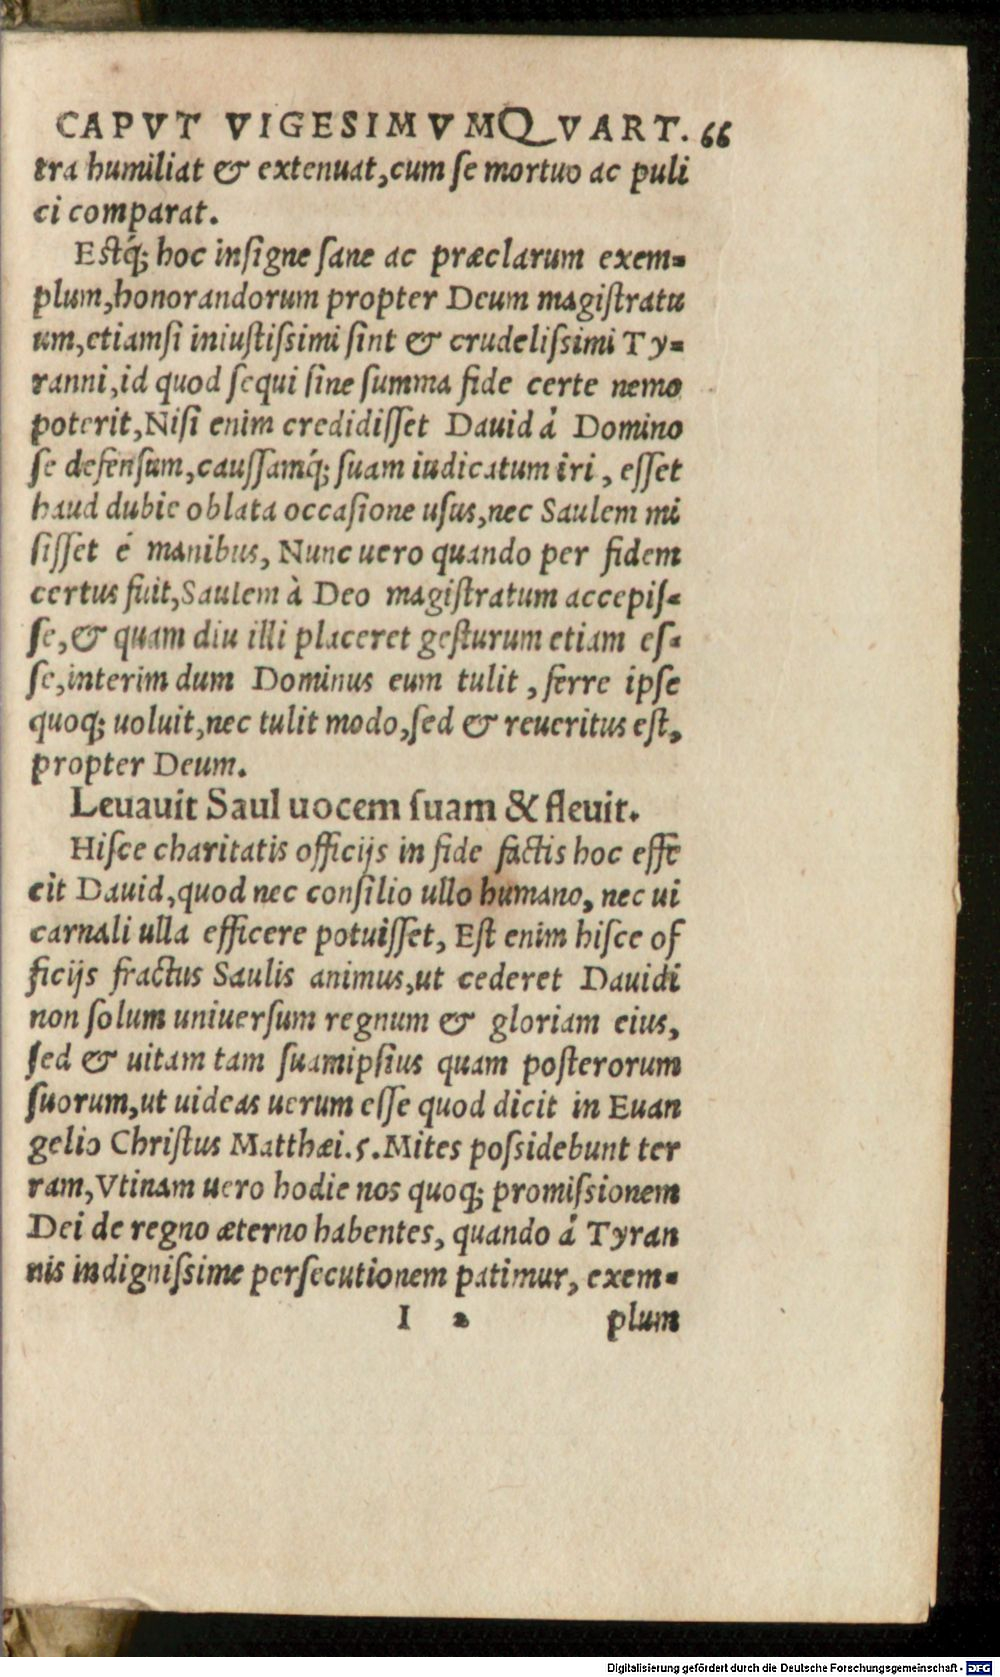 CAPVT VIGESIMVMQVART. 66
tra humiliat & extenuat, cum ſe mortuo ac puli
ci comparat.
Eſtq́; hoc inſigne ſane ac præclarum exem-
plum, honorandorum propter Deum magiſtratu
um, etiamſi iniuſtiſsimi ſint & crudeliſsimi Ty-
ranni, id quod ſequi ſine ſumma fide certe nemo
poterit, Niſi enim credidiſſet Dauid á Domino
ſe defenſum, cauſſamq́; ſuam iudicatum iri, eſſet
haud dubie oblata occaſione uſus, nec Saulem mi
ſiſſet é manibus, Nunc uero quando per fidem
certus fuit, Saulem à Deo magiſtratum accepiſ-
ſe, & quam diu illi placeret geſturum etiam eſ-
ſe, interim dum Dominus eum tulit, ferre ipſe
quoq; uoluit, nec tulit modo, ſed & reueritus eſt,
propter Deum.
Leuauit Saul uocem ſuam & fleuit.
Hiſce charitatis officijs in fide factis hoc effe
cit Dauid, quod nec conſilio ullo humano, nec ui
carnali ulla efficere potuiſſet, Eſt enim hiſce of
ficijs fractus Saulis animus, ut cederet Dauidi
non ſolum uniuerſum regnum & gloriam eius,
ſed & uitam tam ſuamipſius quam poſterorum
ſuorum, ut uideas uerum eſſe quod dicit in Euan
gelio Chriſtus Matthæi. 5. Mites poſsidebunt ter
ram, Vtinam uero hodie nos quoq; promiſsionem
Dei de regno æterno habentes, quando á Tyran
nis indigniſsime perſecutionem patimur, exem-
I 2 plum
Digitalisierung gefördert durch die Deutsche Forschungsgemeinschaft - DFG